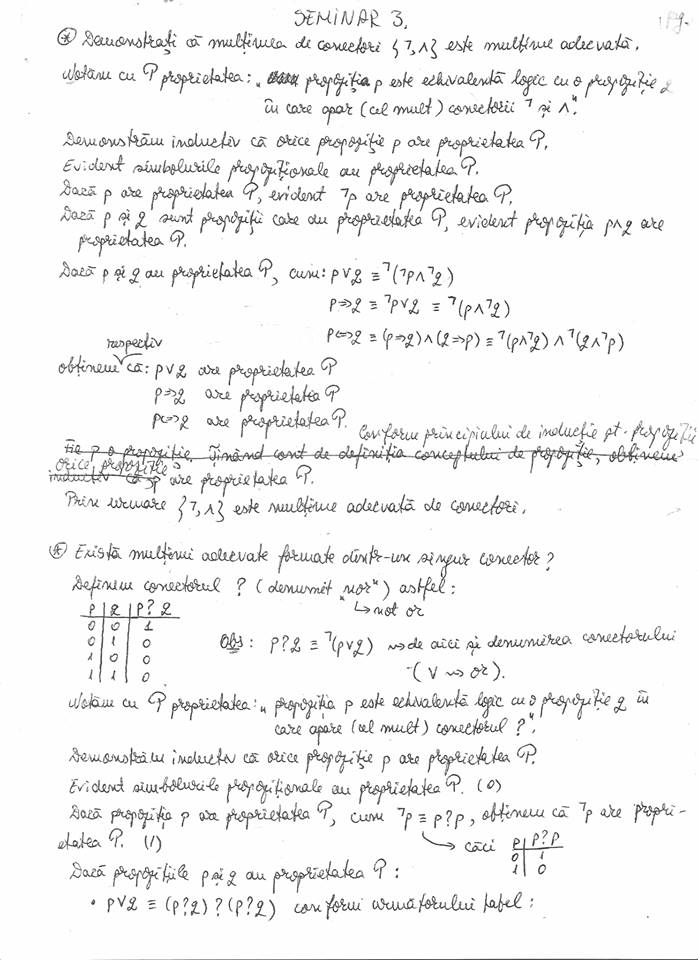 SEMINAR 3.
pg.
* Demonstrați că mulțimea de conectori {⌐,∧} este mulțime adecvată.
Notăm cu P proprietatea: „ propoziția p este echivalentă logic cu o propoziție q
în care apar (cel mult) conectorii ⌐ și ∧".
Demonstrăm inductiv că orice propoziție p are proprietatea P.
Evident simbolurile propoziționale au proprietatea P.
Dacă p are proprietatea P, evident ⌐p are proprietatea P.
Dacă p și q sunt propoziții care au proprietatea P, evident propoziția p∧q are
proprietatea P.
Dacă p și q au proprietatea P, cum: p∨q ≡ ⌐(⌐p∧⌐q)
p⇒q ≡ ⌐p∨q ≡ ⌐(p∧⌐q)
p⇔q ≡ (p⇒q)∧(q⇒p) ≡ ⌐(p∧⌐q) ∧ ⌐(q∧⌐p)
respectiv
obținem că: p∨q are proprietatea P
p⇒q are proprietatea P
p⇔q are proprietatea P.
Conform principiului de inducție pt. propoziții
Fie p o propoziție. Ținând cont de definiția conceptului de propoziție, obținem
orice propoziție
inductiv că p are proprietatea P.
Prin urmare {⌐,∧} este mulțime adecvată de conectori.
* Există mulțimi adecvate formate dintr-un singur conector?
Definim conectorul ? (denumit „nor") astfel:
↳ not or
p | q | p?q
0 | 0 | 1
0 | 1 | 0
1 | 0 | 0
1 | 1 | 0
Obs: p?q ≡ ⌐(p∨q) ⇝ de aici și denumirea conectorului
(∨ ⇝ or).
Notăm cu P proprietatea: „ propoziția p este echivalentă logic cu o propoziție q în
care apare (cel mult) conectorul ?".
Demonstrăm inductiv că orice propoziție p are proprietatea P.
Evident simbolurile propoziționale au proprietatea P. (0)
Dacă propoziția p are proprietatea P, cum ⌐p ≡ p?p, obținem că ⌐p are propri-
etatea P. (1)
↳ căci
p | p?p
0 | 1
1 | 0
Dacă propozițiile p și q au proprietatea P:
• p∨q ≡ (p?q)?(p?q) conform următorului tabel: